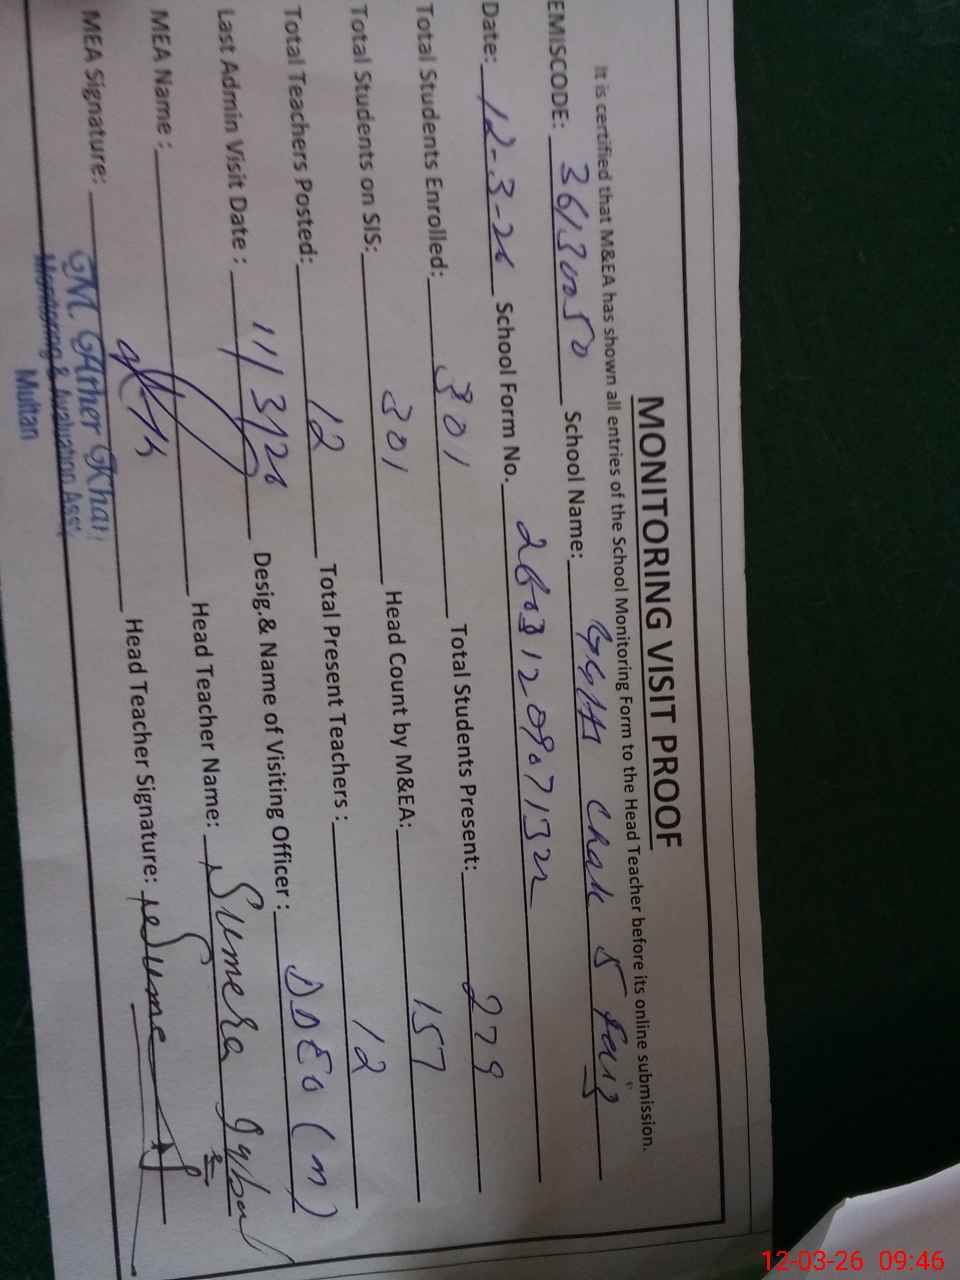 MONITORING VISIT PROOF
It is certified that M&EA has shown all entries of the School Monitoring Form to the Head Teacher before its online submission.
EMISCODE: 36130050 School Name: GGHS Chak 5 Faiz
Date: 12-3-26 School Form No. 2603120907132
Total Students Enrolled: 301 Total Students Present: 279
Total Students on SIS: 301 Head Count by M&EA: 157
Total Teachers Posted: 12 Total Present Teachers : 12
Last Admin Visit Date : 11/3/26 Desig.& Name of Visiting Officer : DDEO (M)
MEA Name : Head Teacher Name: Sumera Iqbal
MEA Signature: Head Teacher Signature: Sume
M. Ather Khan
Monitoring & Avaluation Asst
Multan
12-03-26 09:46